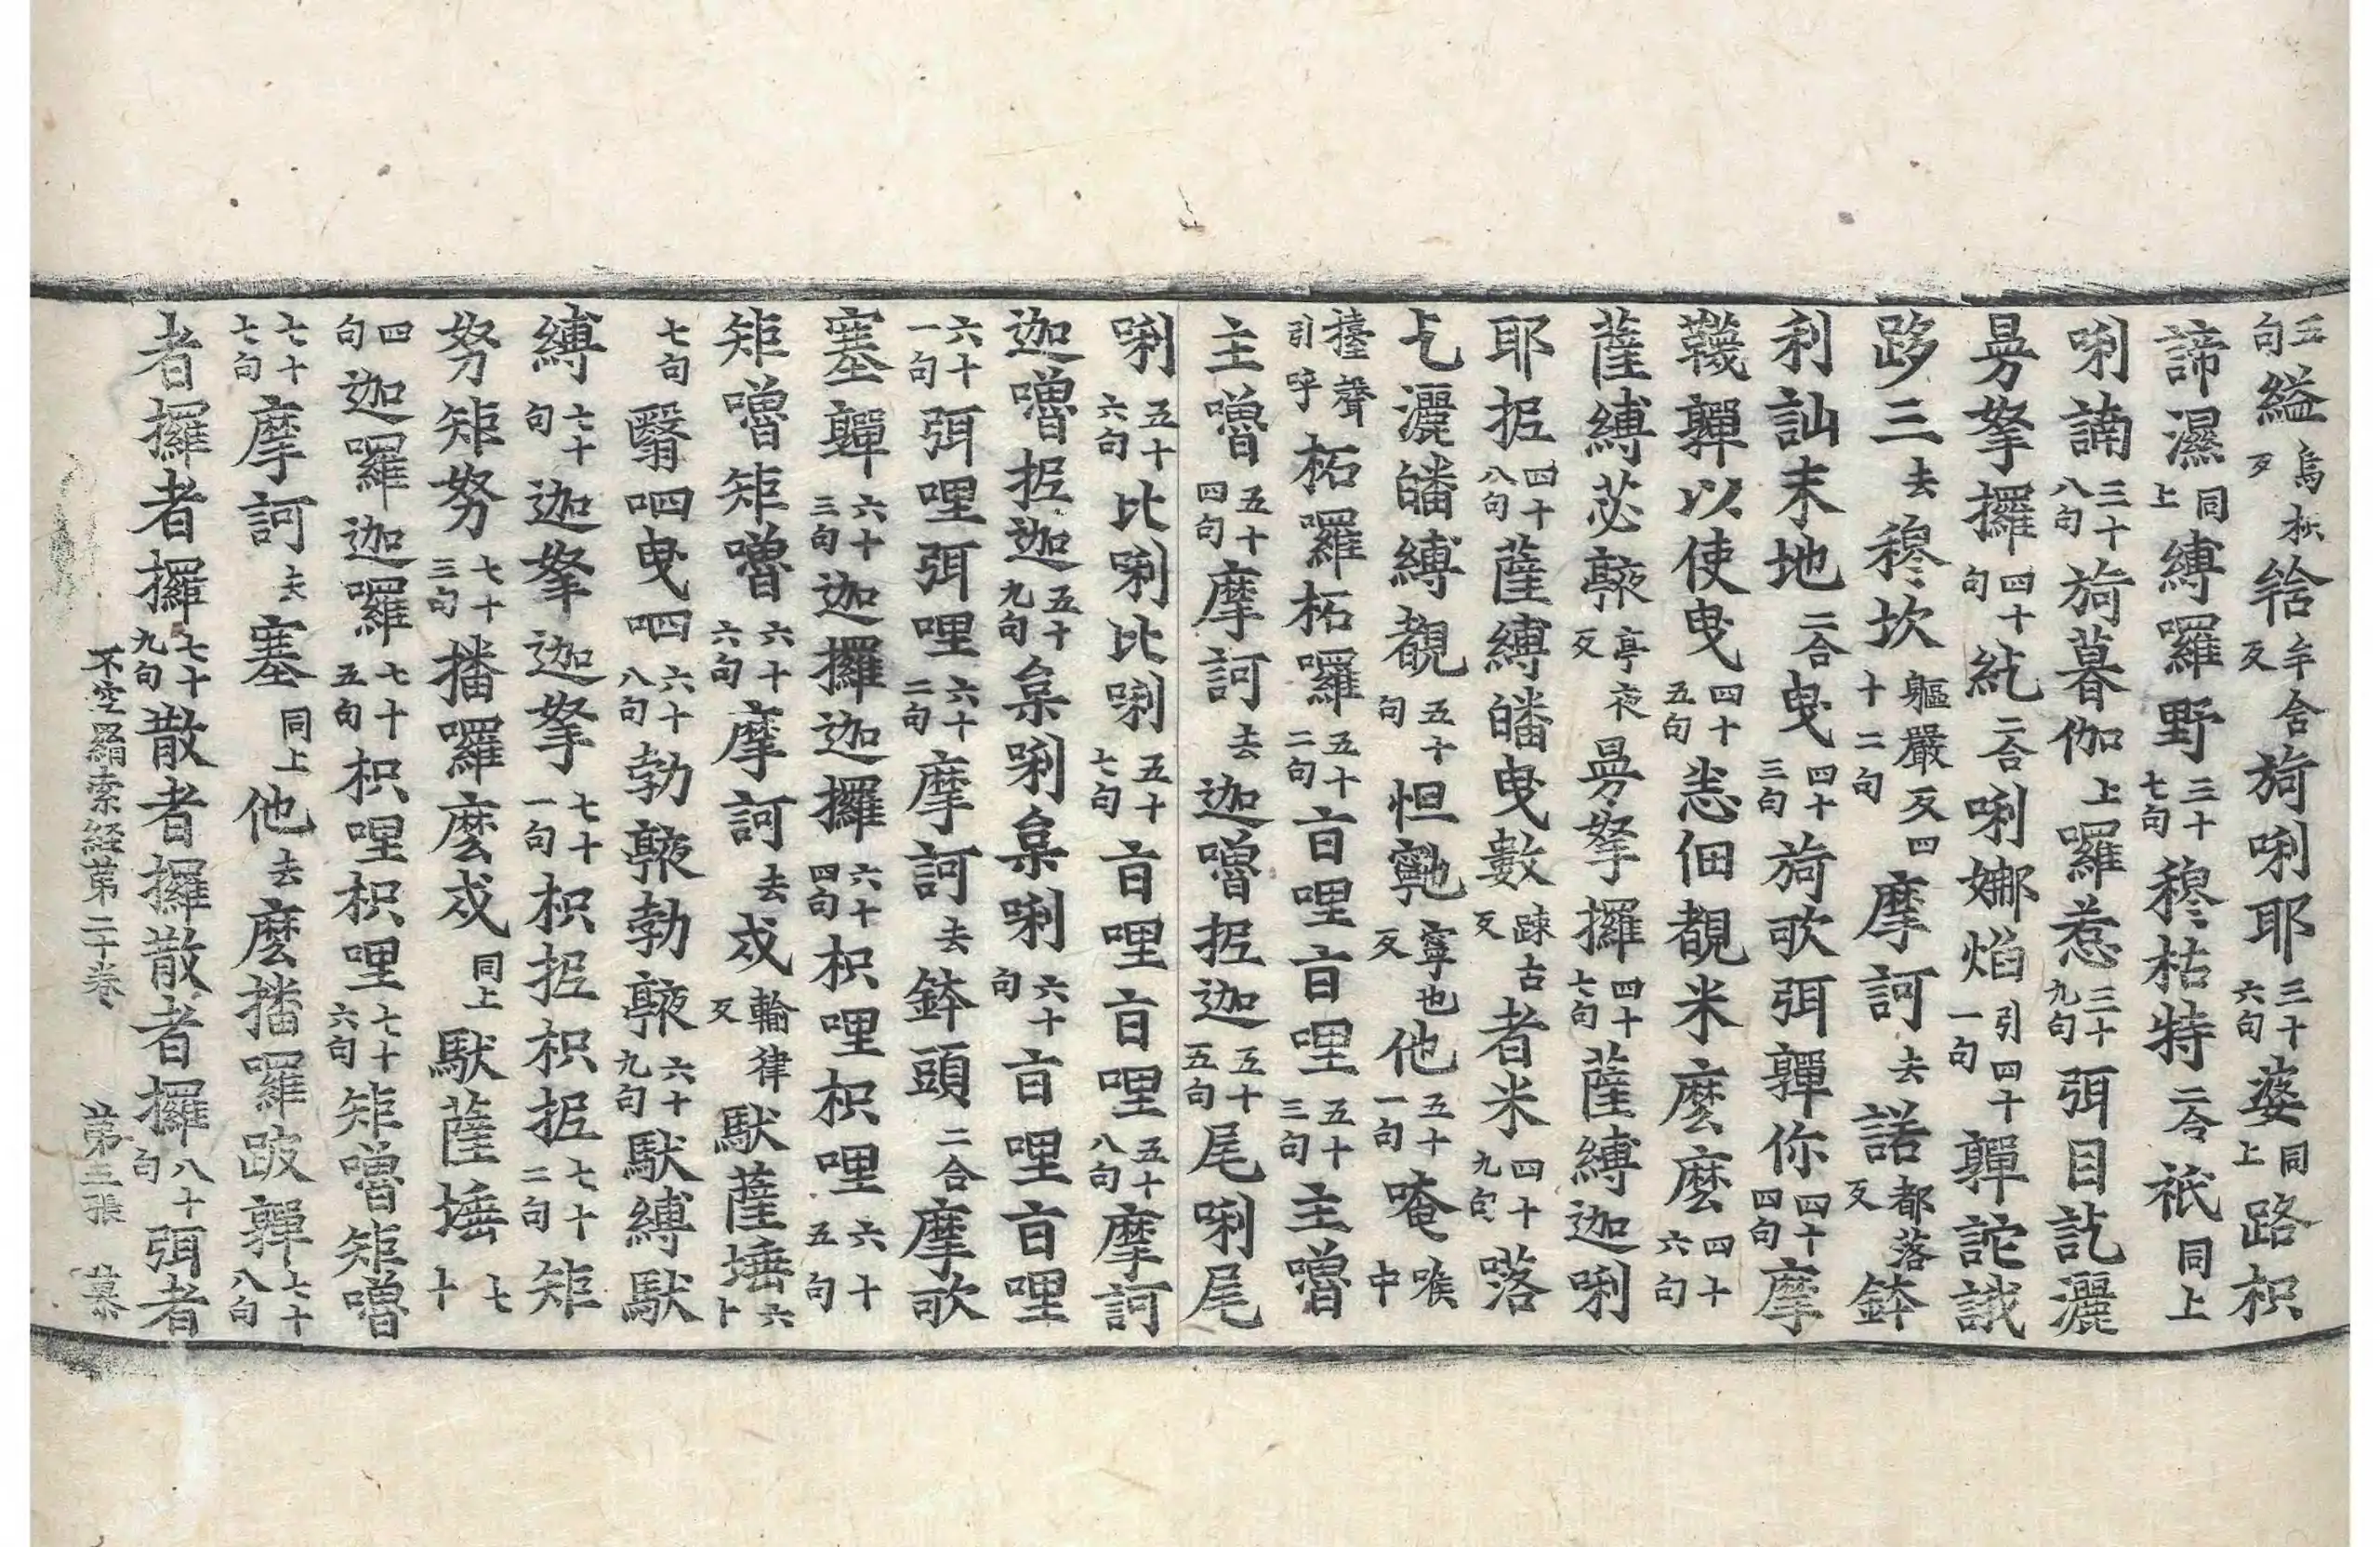 五句縊烏枳反䇶牟含反旖唎耶三十六句婆同上路枳
諦濕同上縛羅野三十七句穆枯特二合祇同上
唎諵三十八句旖暮伽上囉惹三十九句弭目訖灑
曼拏攞四十句紇二合唎娜焰引四十一句嚲詑誐
跢三去穆坎軀嚴反四十二句摩訶去諾都落反鉢
利訕末地二合曳四十三句旖歌弭嚲你四十四句摩
韈嚲以使曳四十五句恙佃覩米麼麼四十六句
薩縛苾㗚亭夜反曼拏攞四十七句薩縛迦唎
耶抳四十八句薩縛皤曳數疎古反者米四十九句落
乞灑皤縛覩五十句怛㝹寧也反他五十一句唵喉中
擡聲引呼柘囉柘囉五十二句亯哩亯哩五十三句主嚕
主嚕五十四句摩訶去迦嚕抳迦五十五句尾唎尾
唎五十六句比唎比唎五十七句亯哩亯哩五十八句摩訶
迦嚕抳迦五十九句枲唎枲唎六十句亯哩亯哩
六十一句弭哩弭哩六十二句摩訶去鉢頭二合摩歌
塞嚲六十三句迦攞迦攞六十四句枳哩枳哩六十五句
矩嚕矩嚕六十六句摩訶去戍輪律反馱薩埵六十
七句翳呬曳呬六十八句勃㗚勃㗚六十九句馱縛馱
縛七十句迦拏迦拏七十一句枳抳枳抳七十二句矩
努矩努七十三句播囉麼戍同上馱薩埵七十
四句迦囉迦囉七十五句枳哩枳哩七十六句矩嚕矩嚕
七十七句摩訶去塞同上他去麼播囉跛嚲七十八句
者攞者攞七十九句散者攞散者攞八十句弭者
不空羂索經第二十卷 第三張 慕